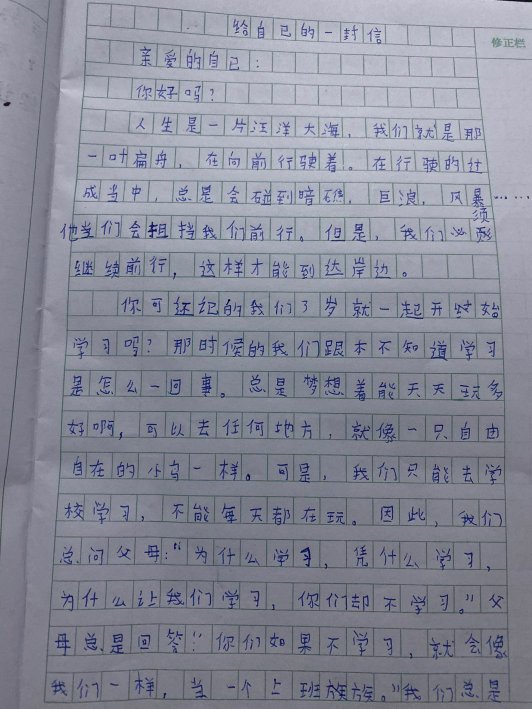 给自己的一封信
修正栏
亲爱的自己：
你好吗？
人生是一片汪洋大海，我们就是那
一叶扁舟，在向前行驶着。在行驶的过
成当中，总是会碰到暗礁，巨浪，风暴……
他当们会阻挡我们前行。但是，我们必须
继续前行，这样才能到达岸边。
你可还记的我们3岁就一起开始
学习吗？那时候的我们跟本不知道学习
是怎么一回事。总是梦想着能天天玩多
好啊，可以去任何地方，就像一只自由
自在的小鸟一样。可是，我们只能去学
校学习，不能每天都在玩。因此，我们
总问父母：“为什么学习，凭什么学习，
为什么让我们学习，你们却不学习。”父
母总是回答：“你们如果不学习，就会像
我们一样，当一个上班族。”我们总是